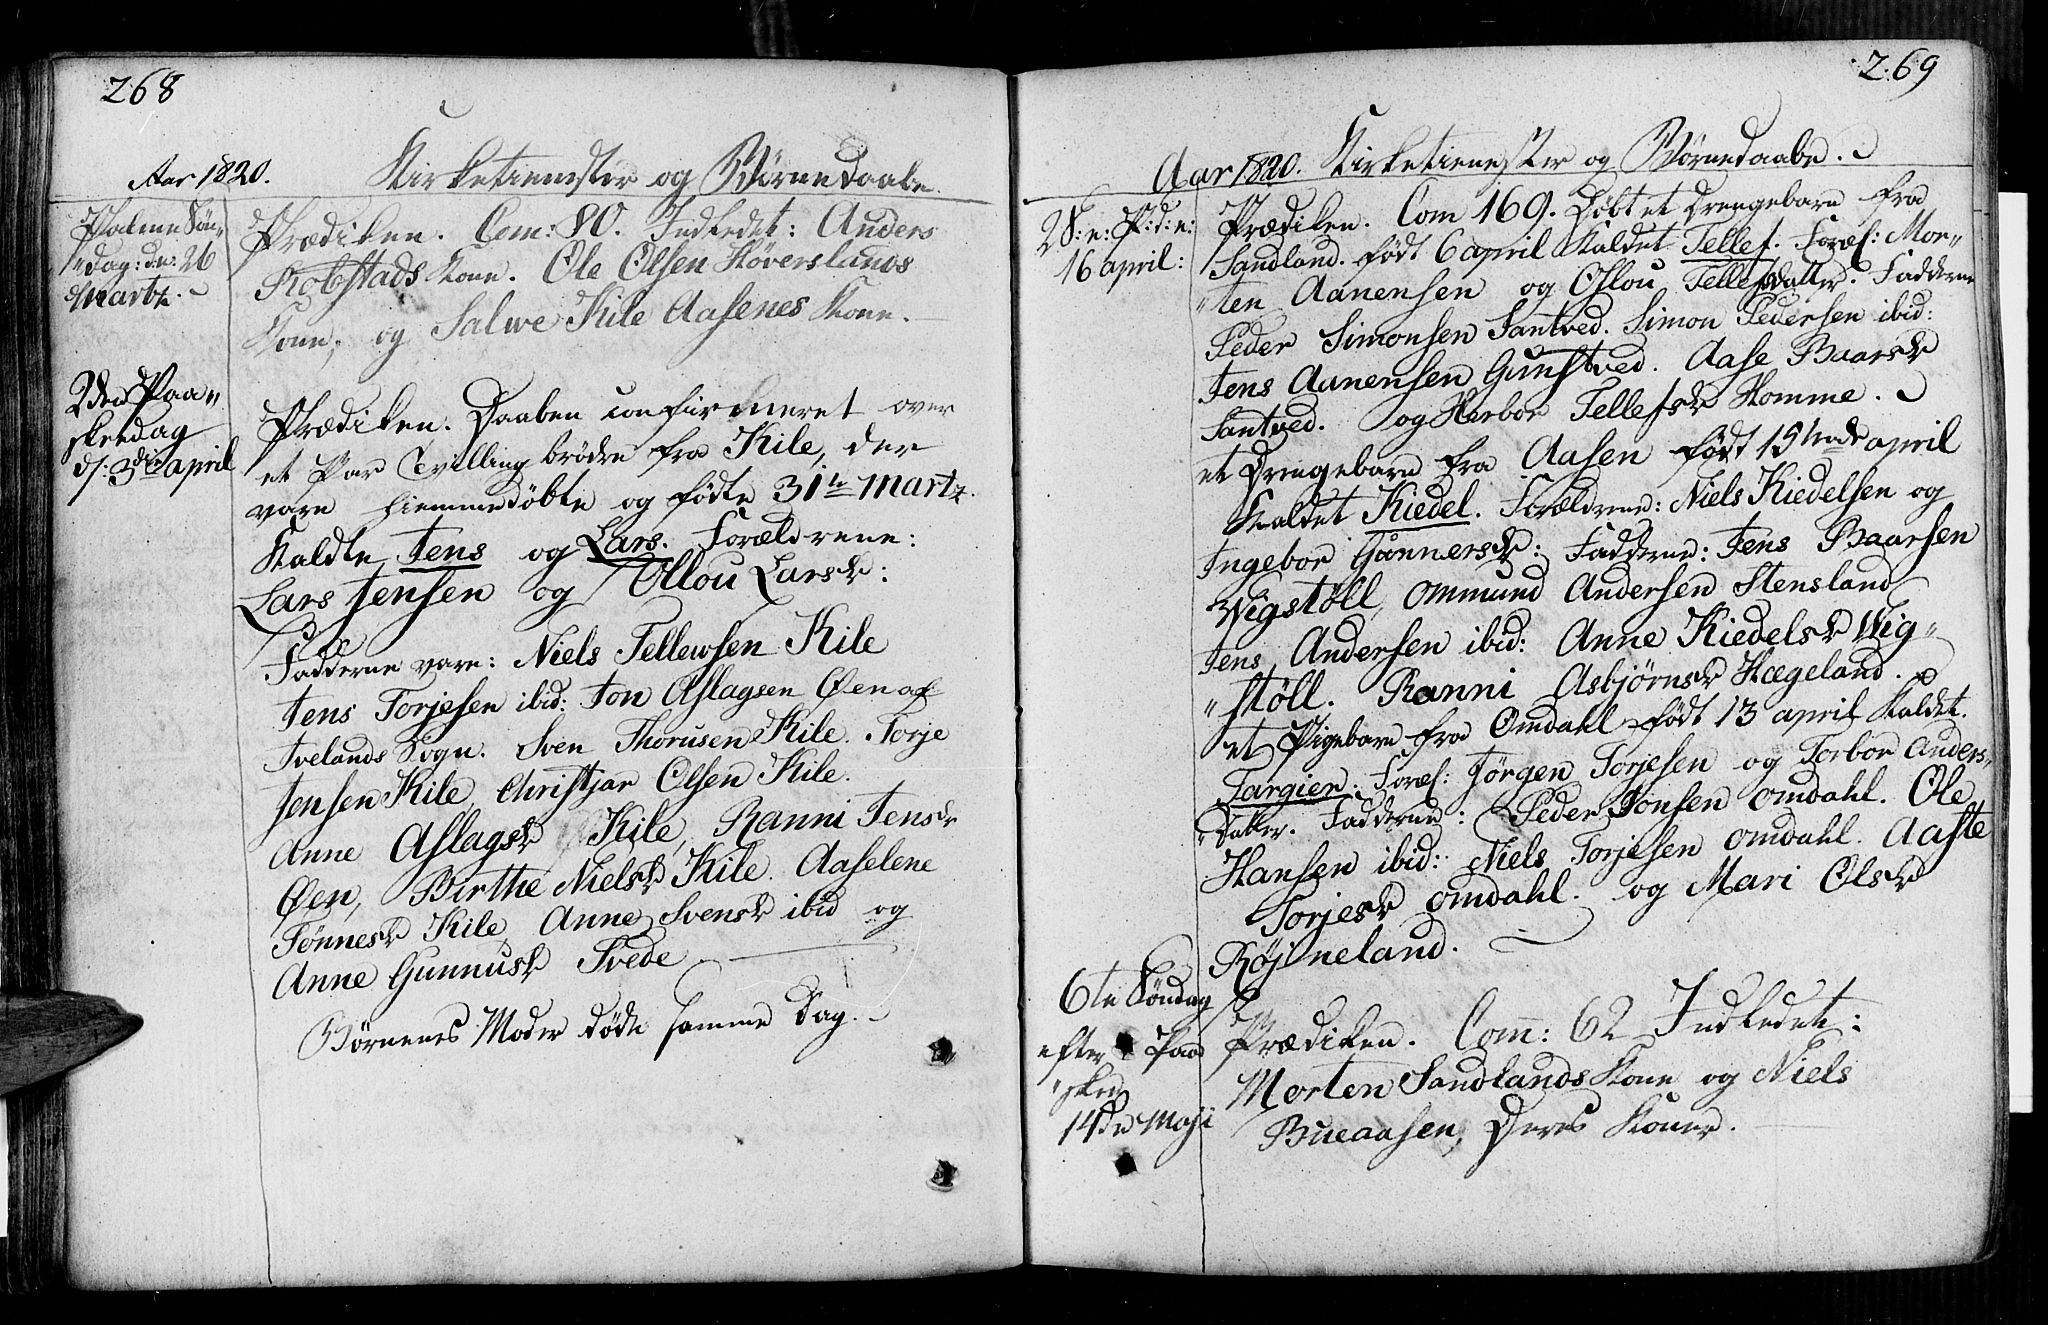 268
Aar 1820. Kirketienester og Børnedaabe.
Palme Søn-
"dag: dn: 26
Martz.
Prædiken. Com: 80. Indledet: Anders
Robstads Kone. Ole Olsen Høverslands
Kone, og Salwe Kile Aasenes Kone.
2den Paa-
skedag
d: 3die april
Prædiken. Daaben confirmeret over
et Par Tvilling brødre fra Kile, der
vare hiemmedøbte og fødte 31te Martz.
Kaldte Jens og Lars. Forældrene:
Lars Jensen og Ollou Larsd:
Fadderne vare: Niels Tellewsen Kile
Jens Torjesen ibid: Jon Aslagsen Øen af
Ivelands Sogn. Sven Thorusen Kile. Torje
Jensen Kile, Christjar Olsen Kile.
Anne Aslagsd Kile, Ranni Jensd
Øen, Birthe Nielsd Kile. Aaselene
Tønnesd Kile, Anne Svensd ibid og
Anne Gunnusd Tvede
Børnenes Moder døde samme Dag.
269
Aar 1820. Kirketienester og Børnedaabe.
2S: e: P: d: e:
16 april:
Prædiken. Com 169. Døbt et Drengebarn fra
Sandland. født 6 april Kaldet Tellef. Foræl: Mor-
"ten Aanensen og Oslou Tellefsdatter. Fadderne
Peder Simonsen Santved. Simon Pedersen ibid:
Jens Aanensen Gunstved. Aase Baarsd
Santved. og Herbor Tellefsd Homme.
et Drengebarn fra Aasen født 15 april
Kaldet Kiedel. Forældrene: Niels Kiedelsen og
Ingebor Gonnersd: Fadderne: Jens Baarsen
Wigstöll, Ommund Andersen Stensland
Jens Andersen ibid: Anne Kiedelsd Wig-
"stöll. Ranni Asbjørnsd Hægeland.
et Pigebarn fra Omdahl født 13 april Kaldet
Targier: Foræl: Jørgen Torjesen og Torbor Anders-
"datter. Fadderne: Peder Jonsen Omdahl. Ole
Hansen ibid: Niels Torjesen Omdahl. Aaste
Torjesd Omdahl. og Mari Olsd
Røjneland.
6te Søndag
efter Paa
"sken
14de Maji
Prædiken. Com: 62 Indledet:
Morten Sandlands Kone og Niels
Bueaasen, Deres Koner.